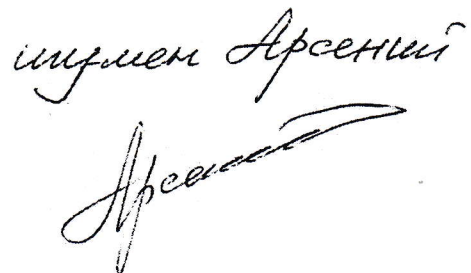 игумен Арсений
Арсений